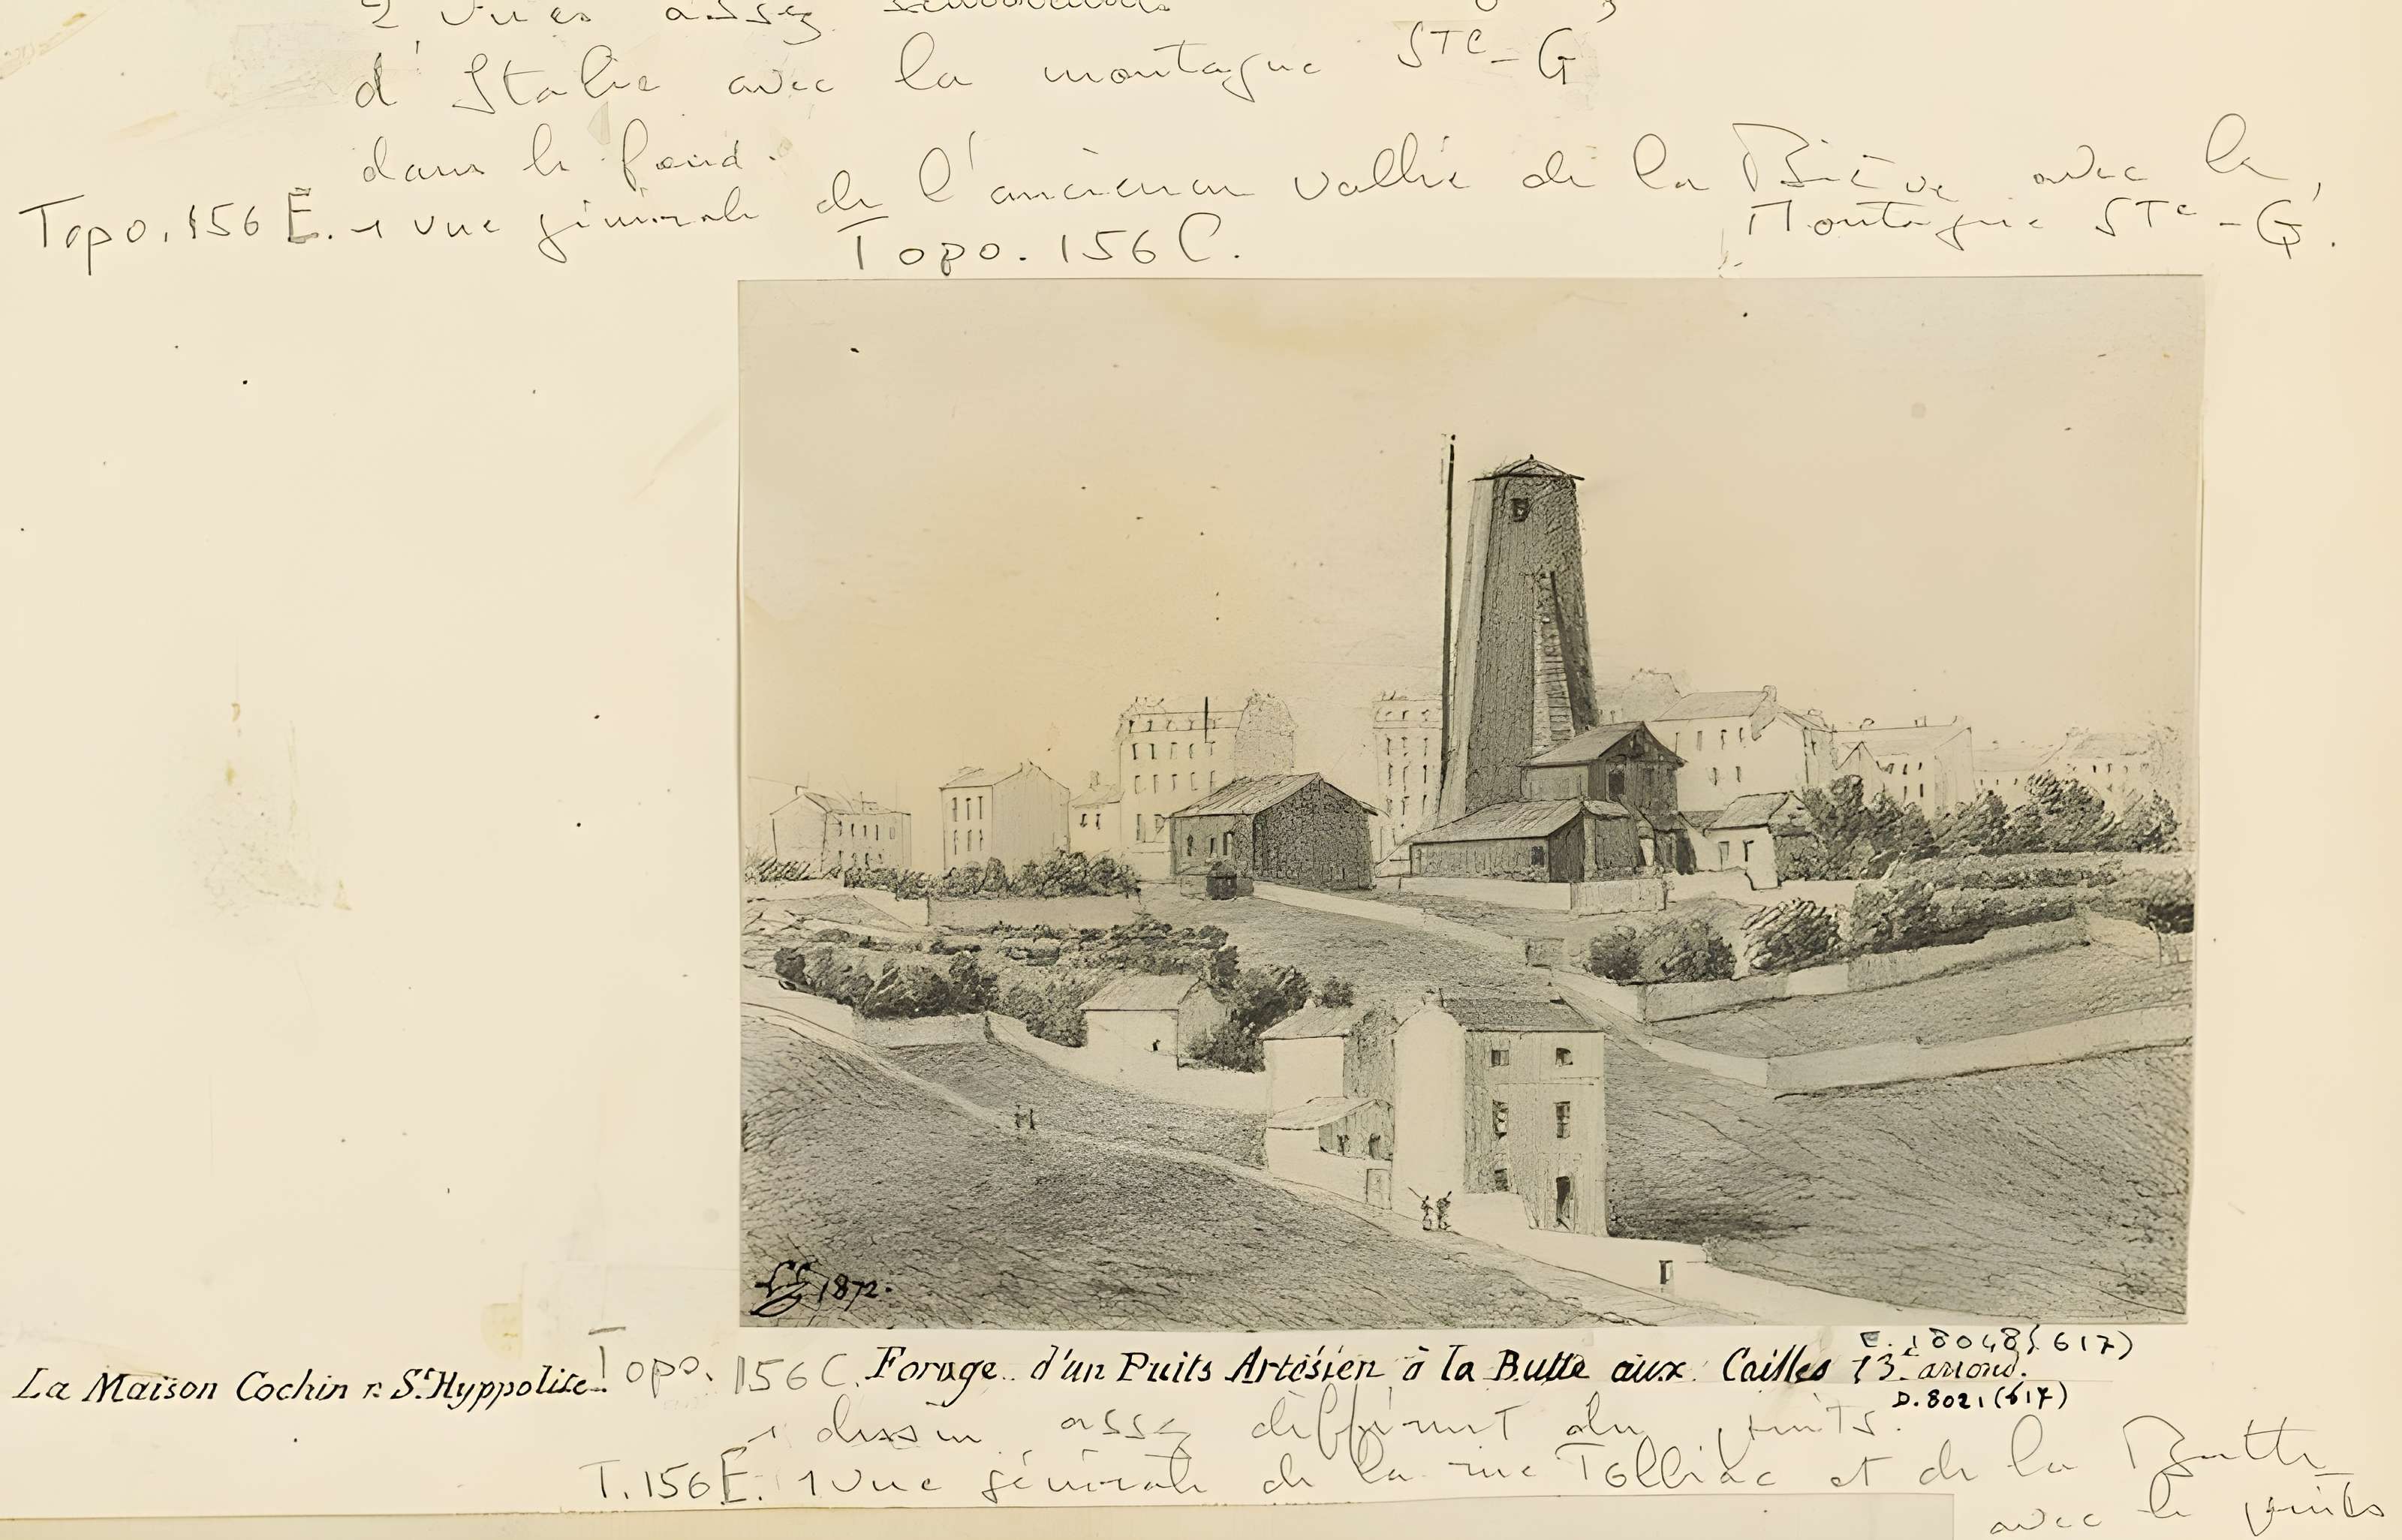 2 vues assez
d'Italie avec la montagne STe-G
dans le fond.
Topo. 156 E. 1 vue générale de l'ancienne vallée de la Bièvre avec la
Montagne STe-G.
Topo. 156 C.
LG 1872.
E. 18048 (617)
La Maison Cochin r. St Hyppolite. Topo. 156 C. Forage d'un Puits Artésien à la Butte aux Cailles 13 arrond.
D. 8021 (617)
1 dessin assez différent du puits.
T. 156 E. 1 vue générale de la rue Tolbiac et de la Butte
avec le puits